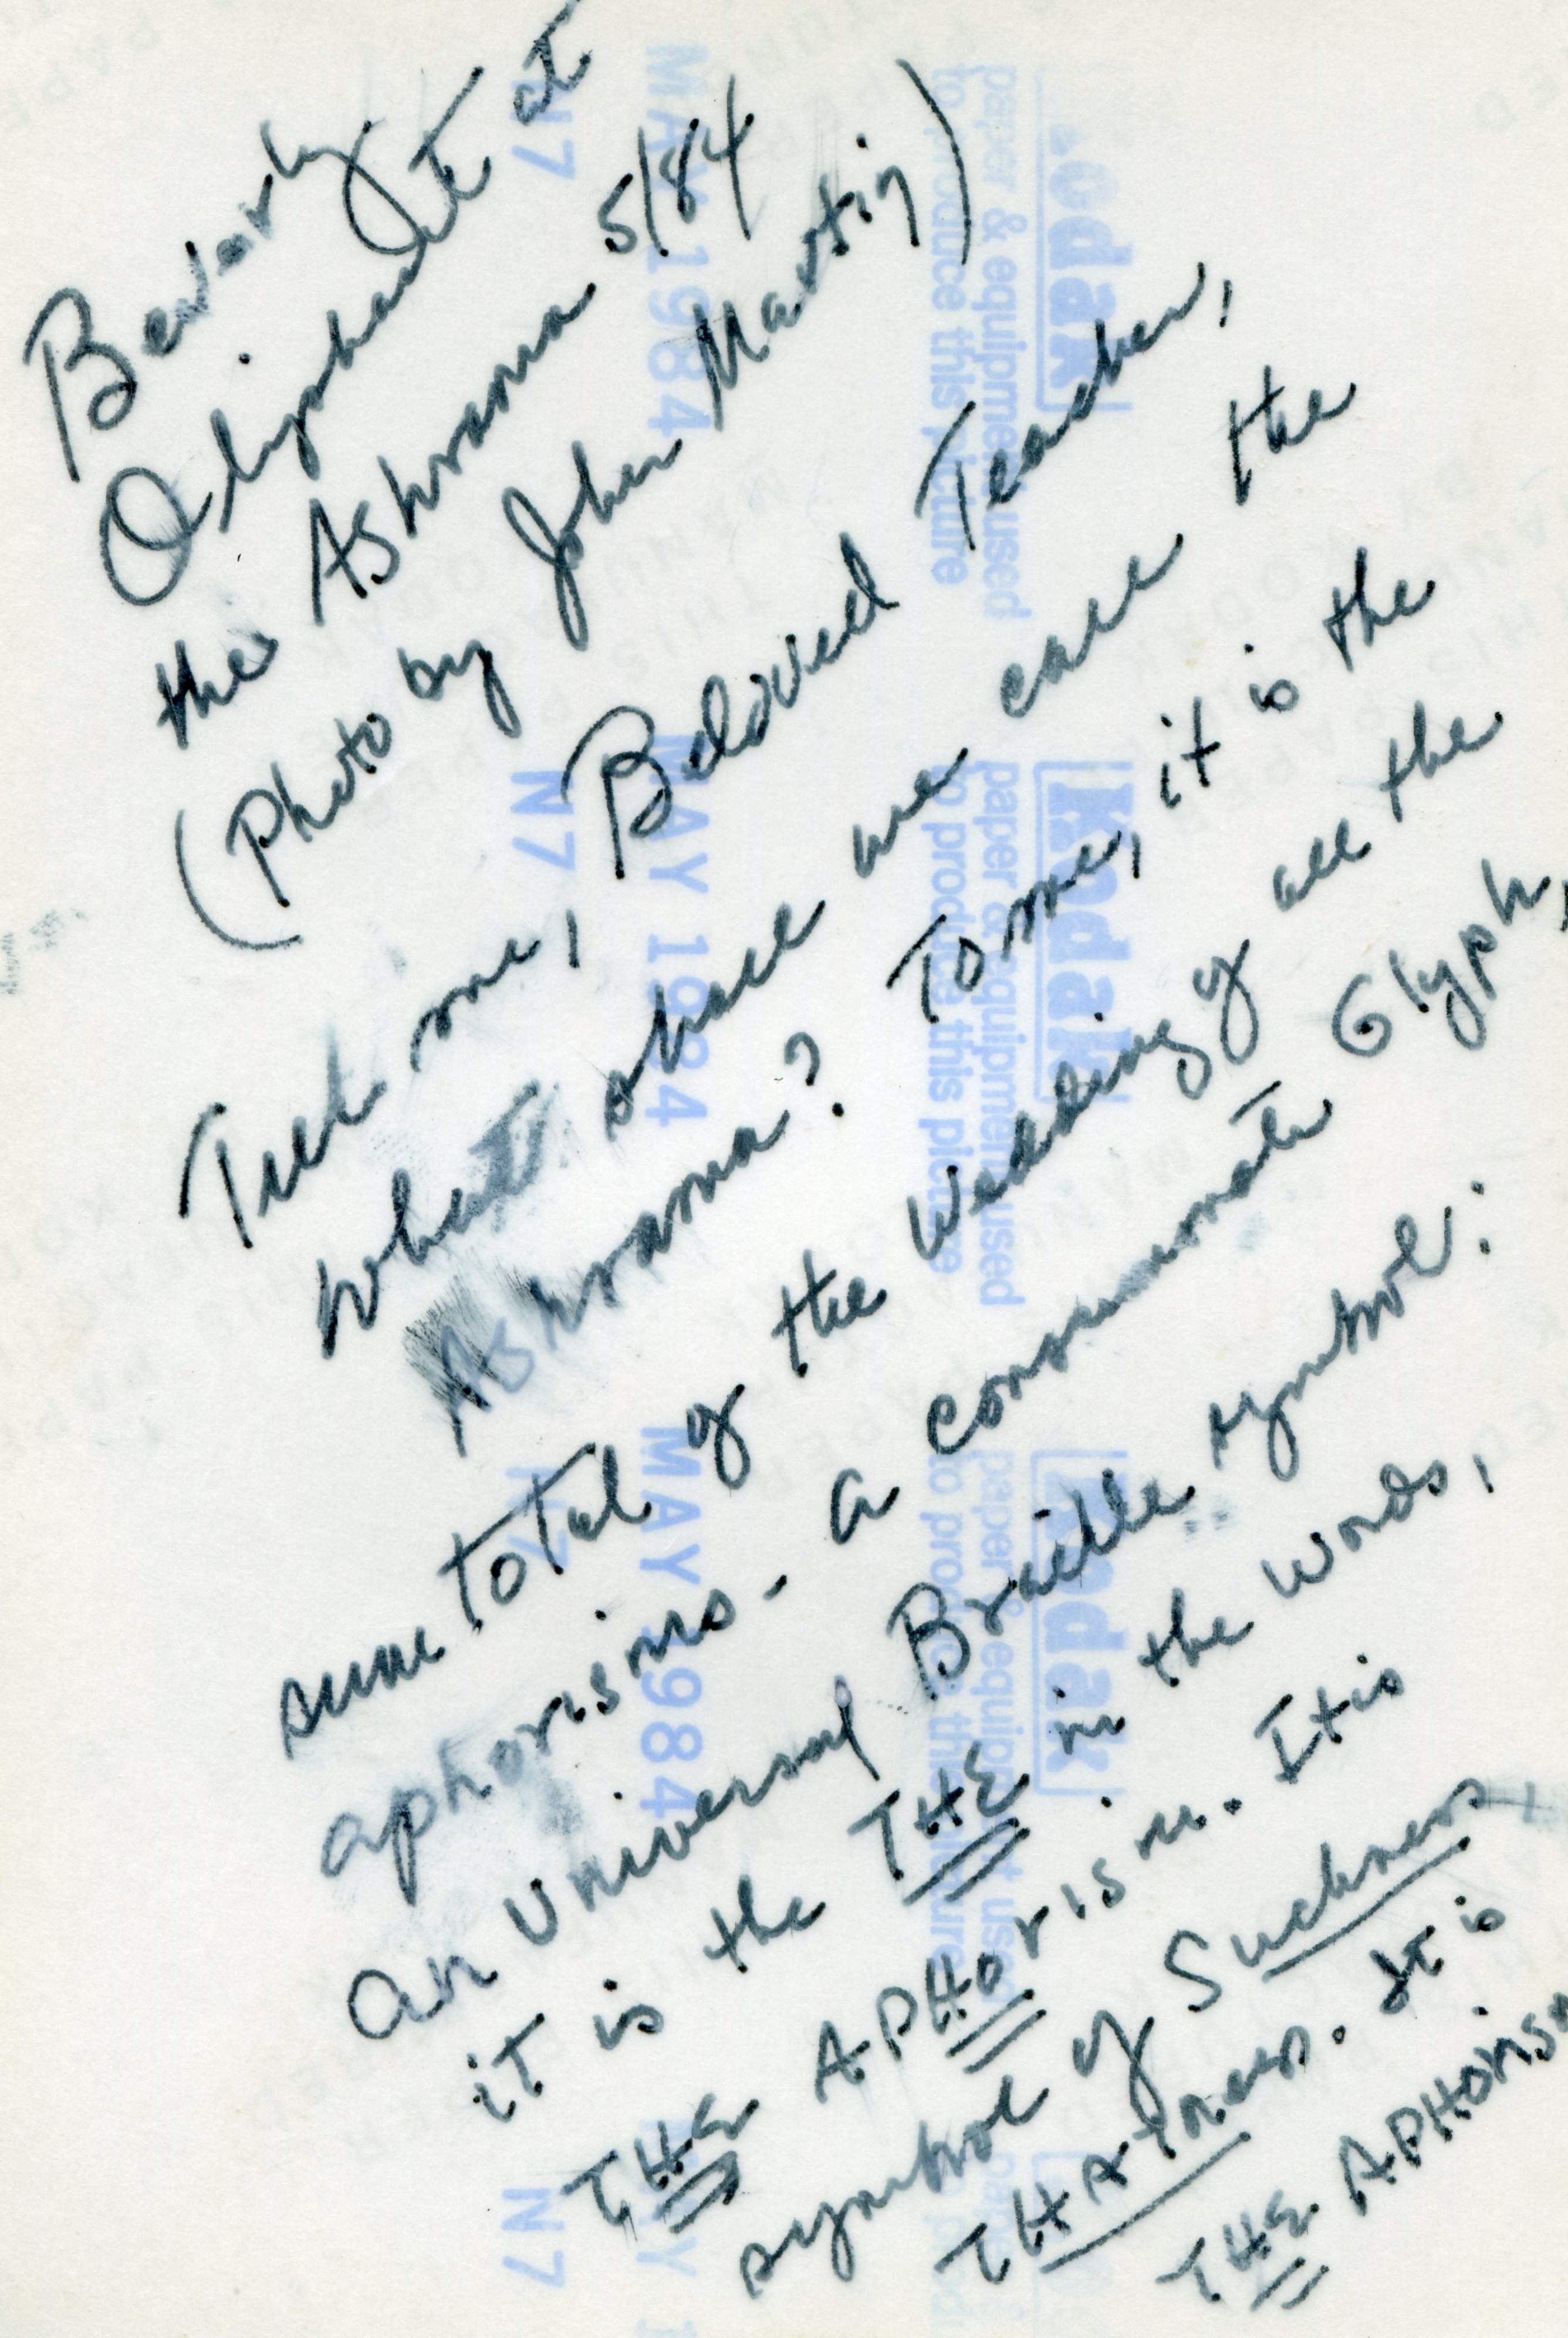 Beverly
Oliphant at
the Ashrama 5/84
(Photo by John Martin)
Tell me, Beloved Teacher,
what shall we call the
Ashrama? To me, it is the
sum total of the wedding of all the
aphorisms - a consummate Glyph,
an Universal Braille symbol:
it is the THE in the words,
THE APHorism. It is
symbol of Suchness,
THATness. It is
THE APHORISM
Kodak
paper & equipment used
to produce this picture
MAY 1984
N7
Kodak
paper & equipment used
to produce this picture
MAY 1984
N7
Kodak
paper & equipment used
to produce this picture
MAY 1984
N7
N7